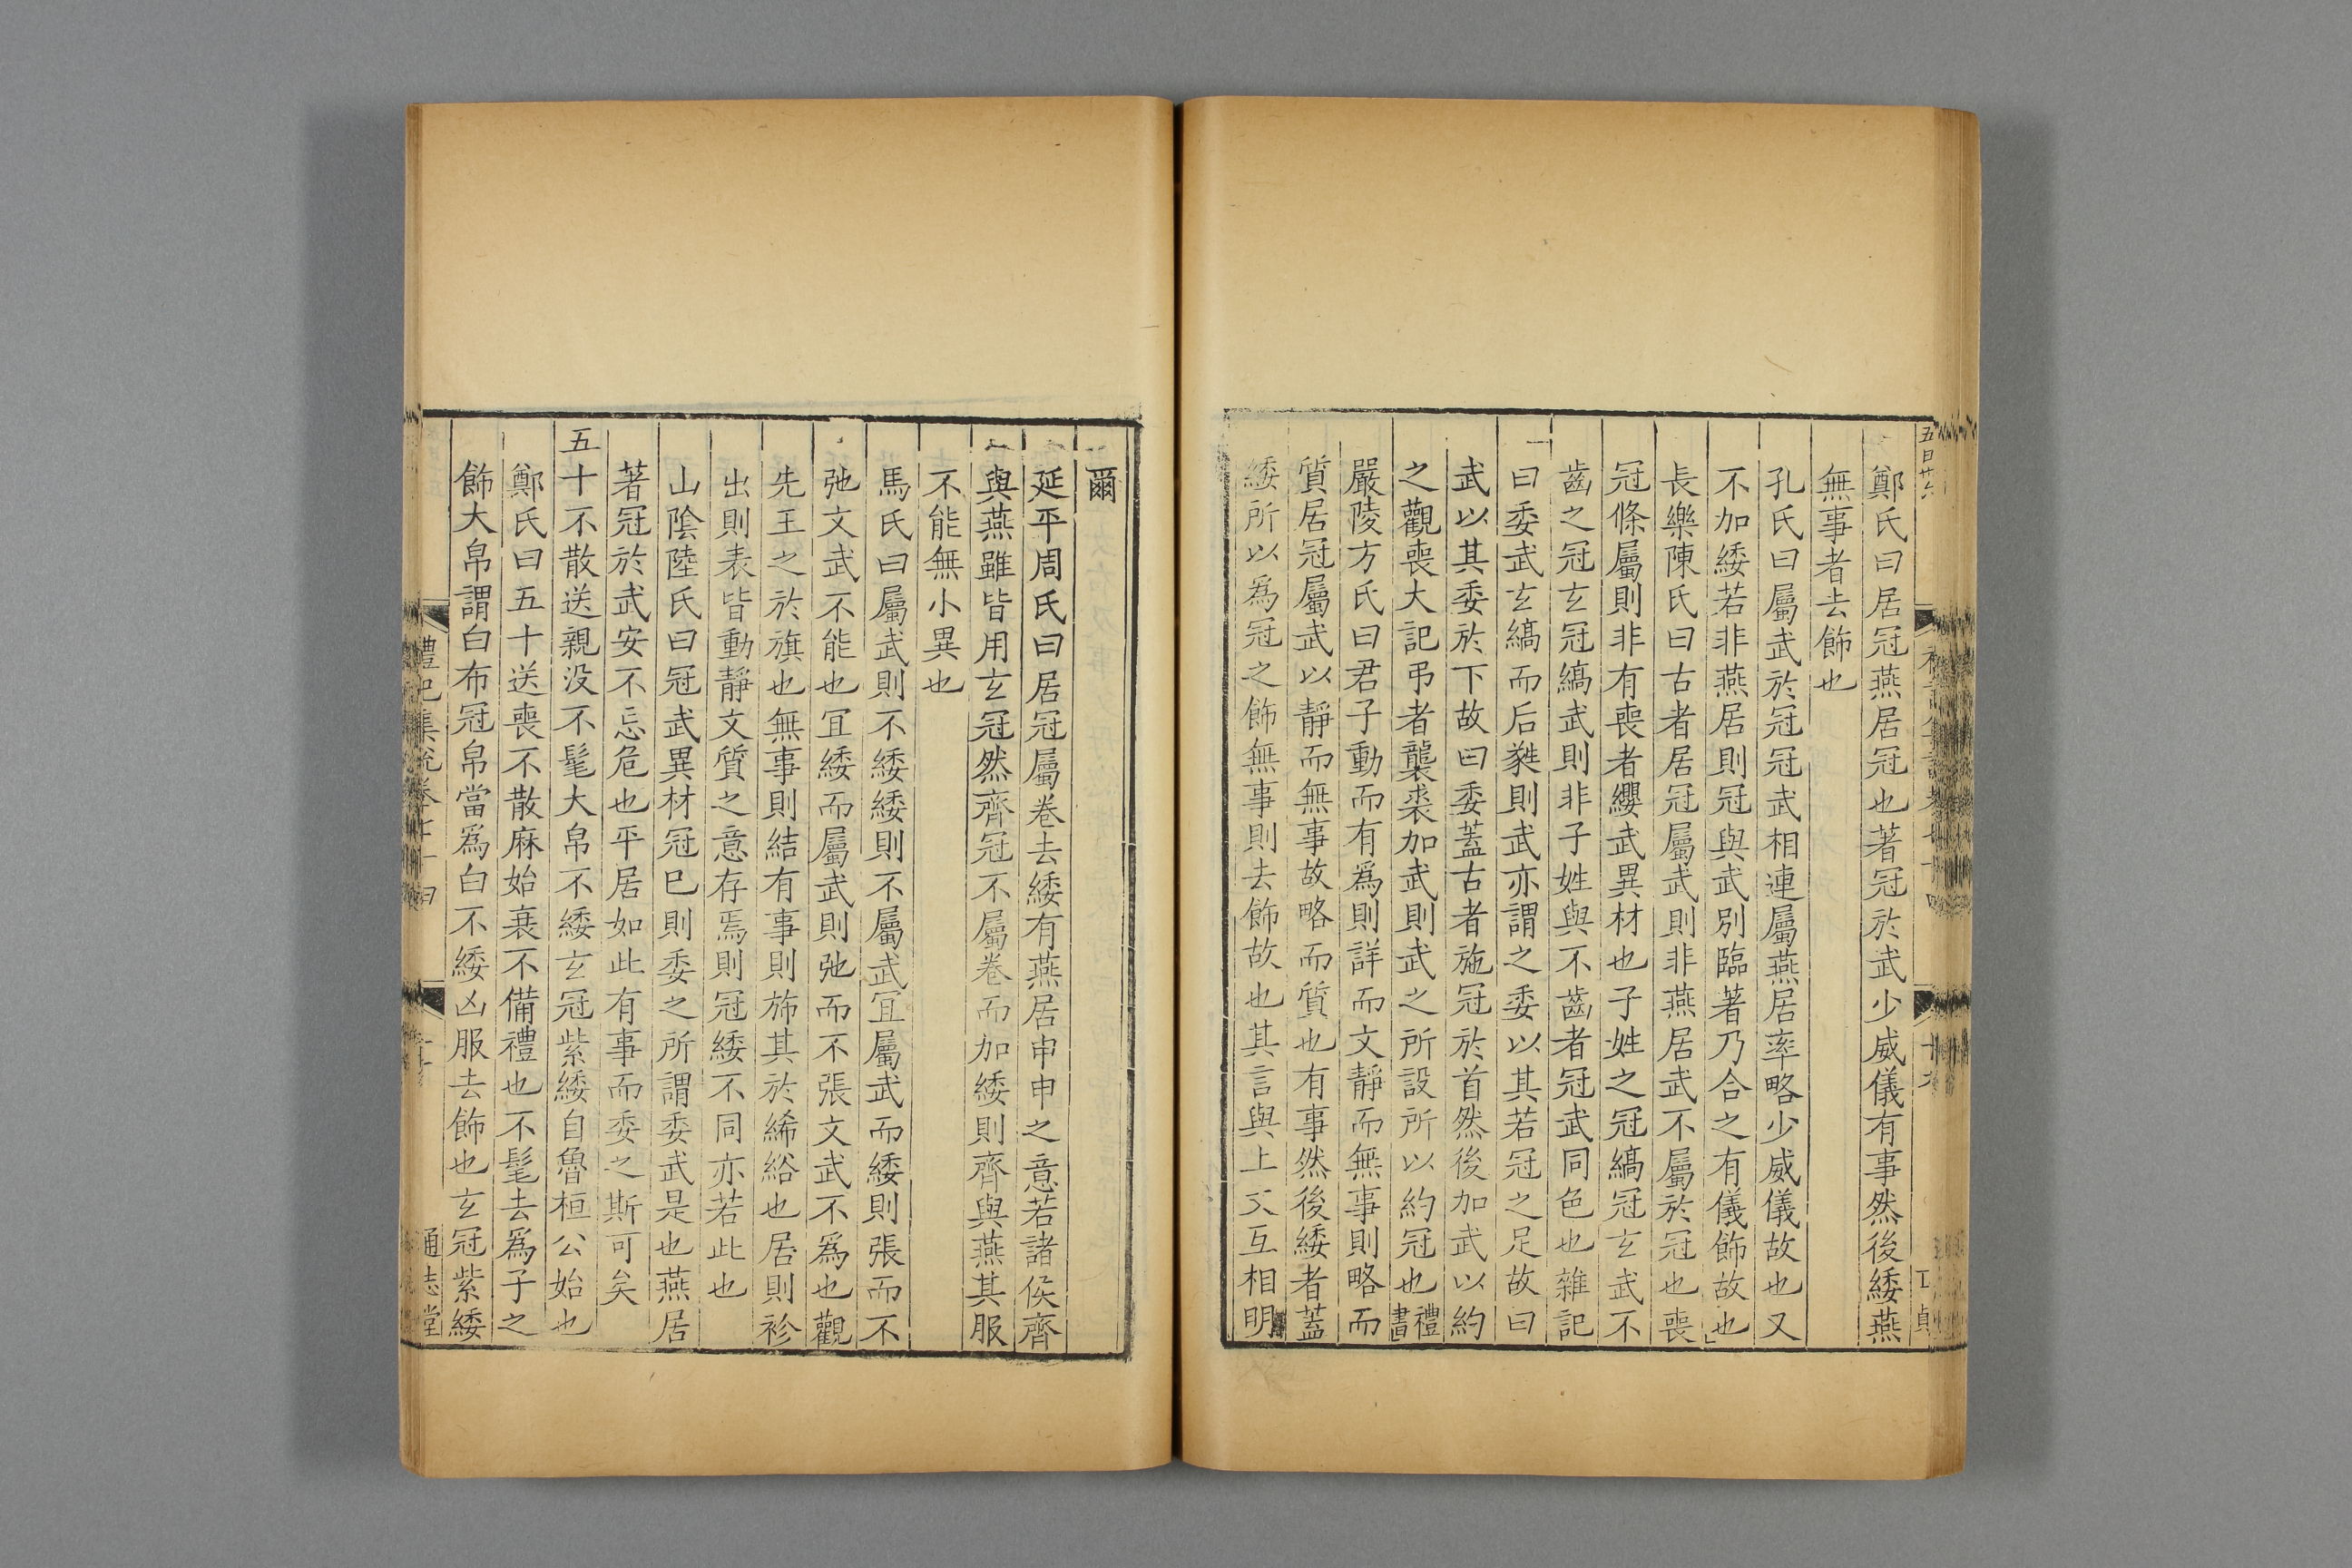 鄭氏曰居冠燕居冠也著冠於武少威儀有事然後緌燕
無事者去飾也
孔氏曰屬武於冠冠武相連屬燕居率略少威儀故也又
不加緌若非燕居則冠與武別臨著乃合之有儀飾故也
長樂陳氏曰古者居冠屬武則非燕居武不屬於冠也喪
冠條屬則非有喪者纓武異材也子姓之冠縞冠玄武不
齒之冠玄冠縞武則非子姓與不齒者冠武同色也雜記
曰委武玄縞而后蕤則武亦謂之委以其若冠之足故曰
武以其委於下故曰委蓋古者施冠於首然後加武以約
之觀喪大記弔者襲裘加武則武之所設所以約冠也禮書
嚴陵方氏曰君子動而有爲則詳而文靜而無事則略而
質居冠屬武以靜而無事故略而質也有事然後緌者蓋
緌所以爲冠之飾無事則去飾故也其言與上文互相明
爾
延平周氏曰居冠屬卷去緌有燕居申申之意若諸侯齊
與燕雖皆用玄冠然齊冠不屬卷而加緌則齊與燕其服
不能無小異也
馬氏曰屬武則不緌緌則不屬武宜屬武而緌則張而不
弛文武不能也宜緌而屬武則弛而不張文武不爲也觀
先王之於旗也無事則結有事則斾其於絺綌也居則袗
出則表皆動靜文質之意存焉則冠緌不同亦若此也
山陰陸氏曰冠武異材冠已則委之所謂委武是也燕居
著冠於武安不忘危也平居如此有事而委之斯可矣
五十不散送親没不髦大帛不緌玄冠紫緌自魯桓公始也
鄭氏曰五十送喪不散麻始衰不備禮也不髦去爲子之
飾大帛謂白布冠帛當爲白不緌凶服去飾也玄冠紫緌
禮記集說卷七十四
通志堂